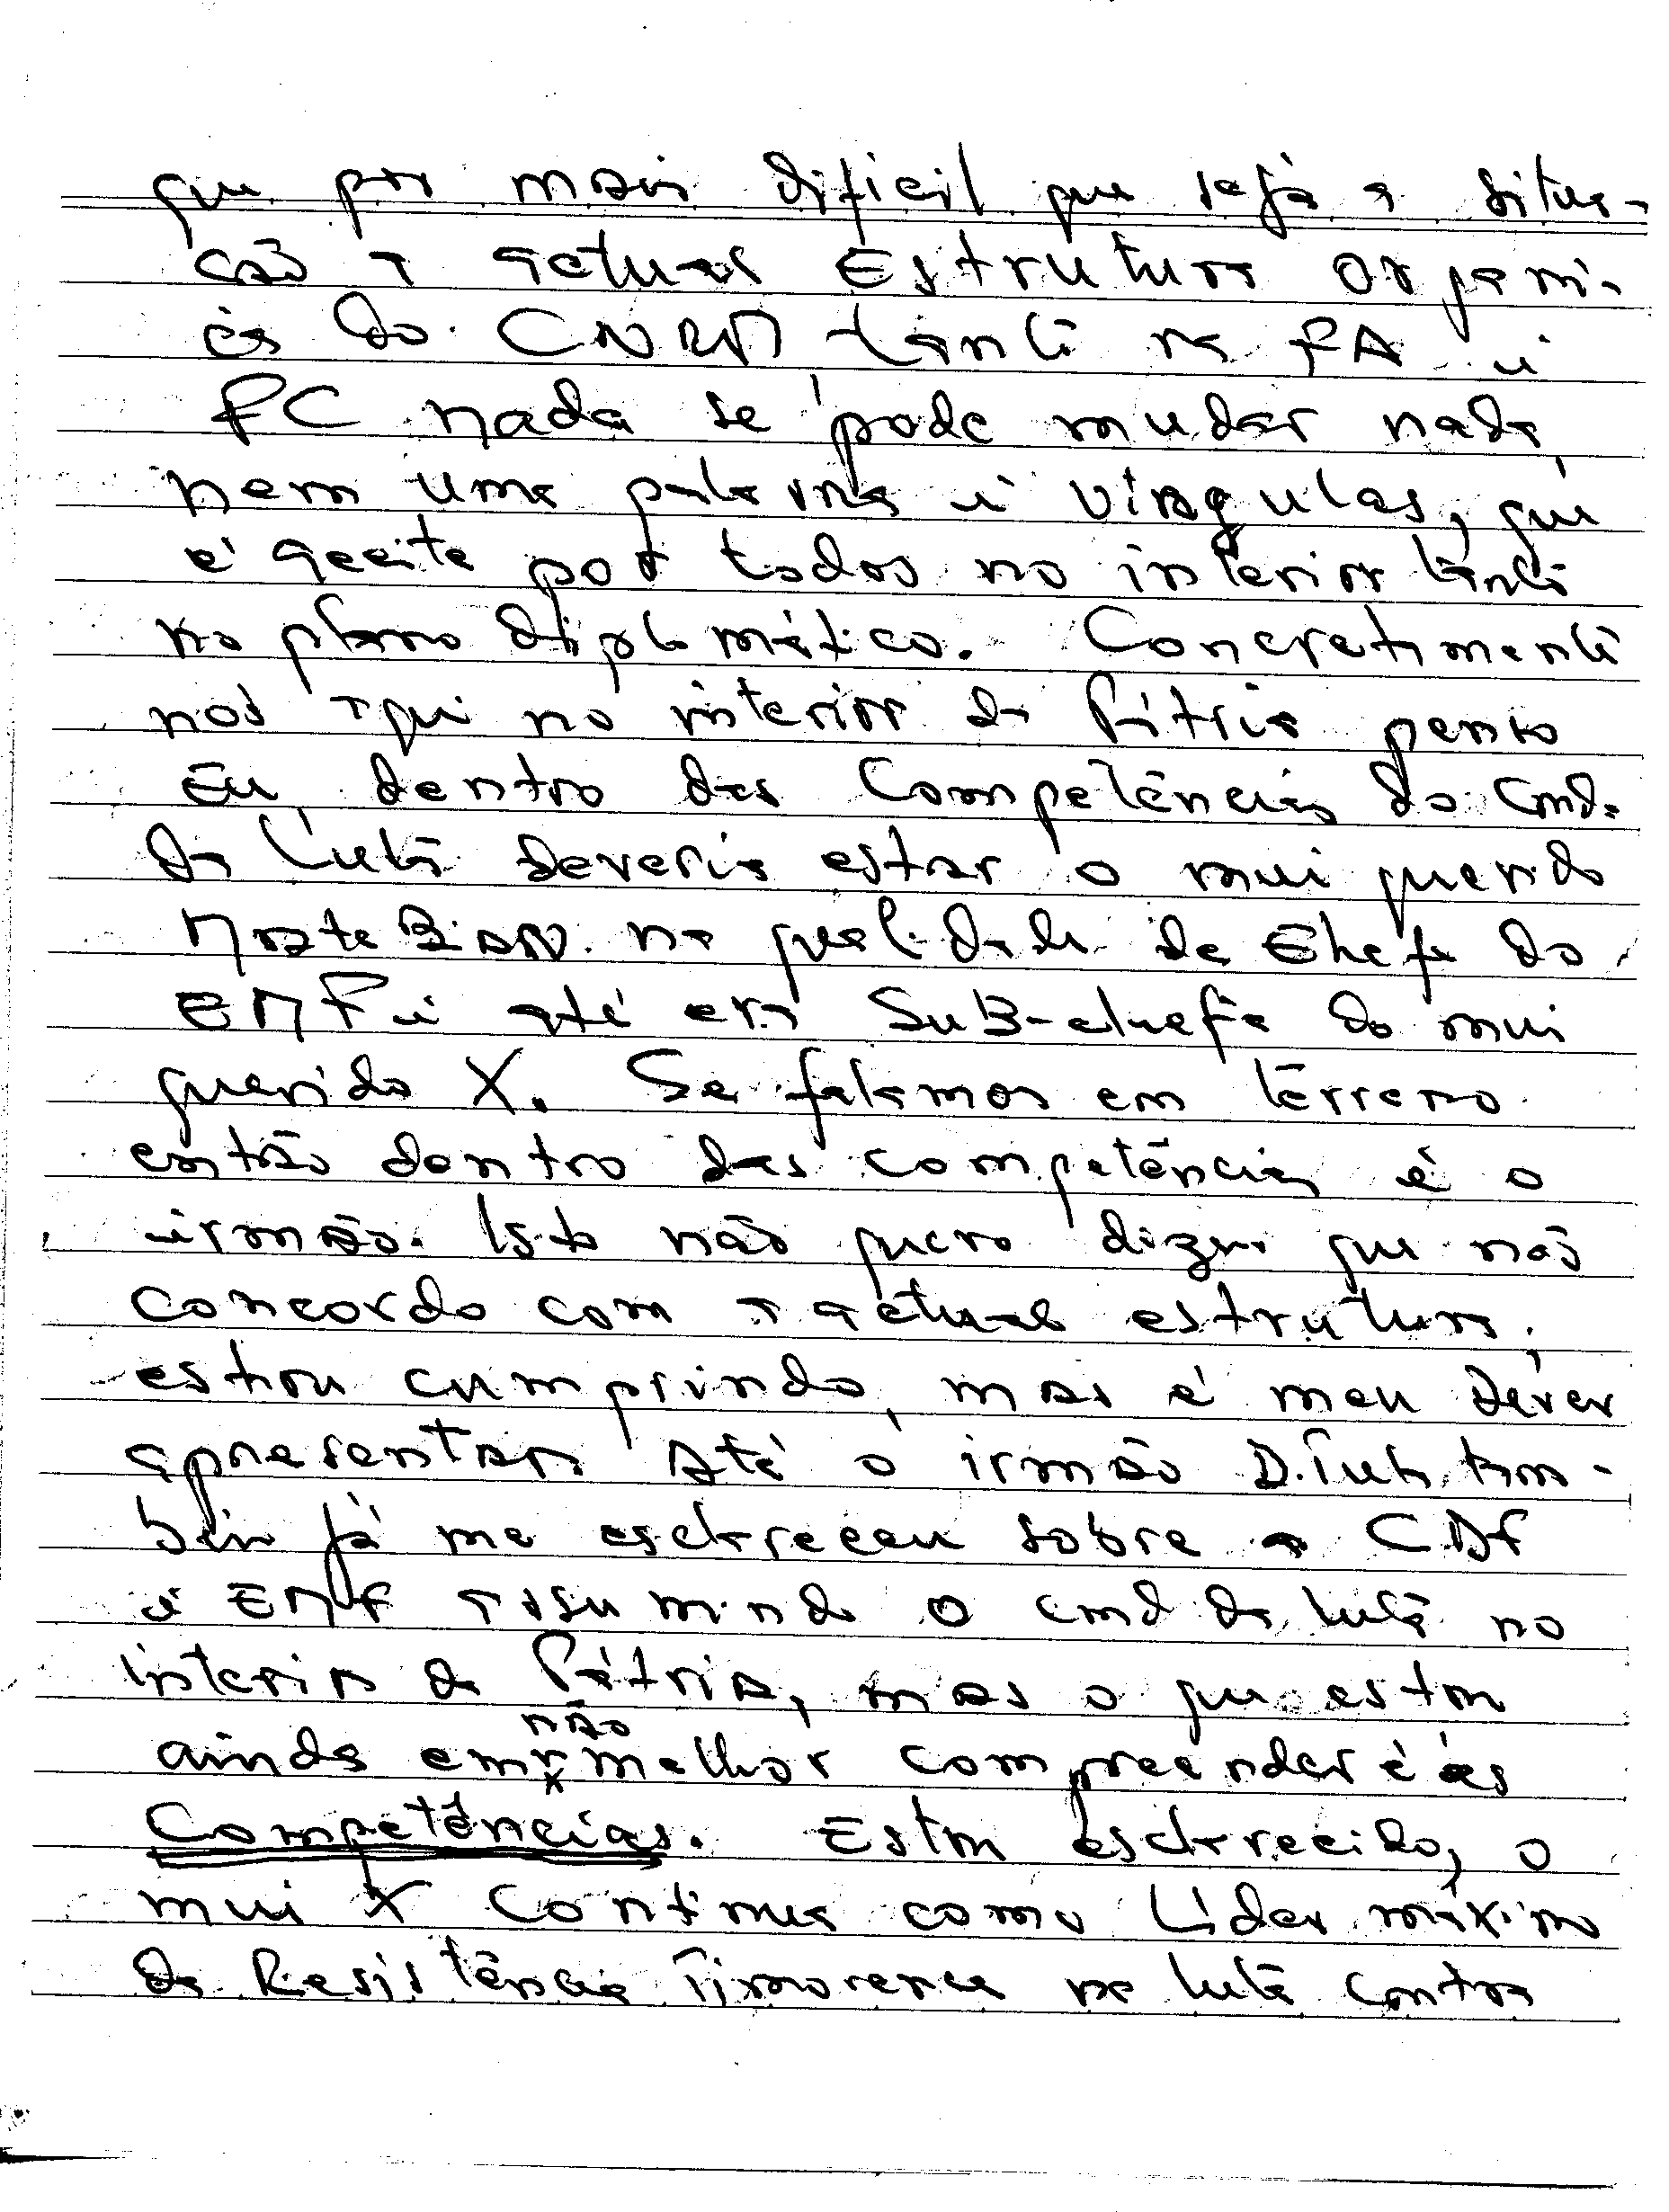 que por mais dificil que seja a situa-
cão a actual Estrutura organi-
ca do CNRM tanto na FA e
FC nada se pode mudar nada,
nem uma palavra e virgulas, que
é aceite por todos no interior tanto
no plano diplomático. Concretamente
nós aqui no interior da Pátria penso
Eu, dentro das Competências do Cmd.
da Luta deveria estar o mui querido
na qualidade de Chefe do
EMF e até era Sub-chefe do mui
querido X. Se falamos em terreno
então dentro das competências é o
irmão. Isto não quero dizer que não
concordo com a actual estrutura,
estou cumprindo, mas é meu dever
apresentar até o irmão tam-
bém já me esclareceu sobre a CDF
e EMF assumindo o cmd da luta no
interior da Pátria, mas o que estou
ainda em não melhor compreender é as
Competências. Estou esclarecido, o
mui X continua como Lider máximo
da Resistência Timorense na luta contra